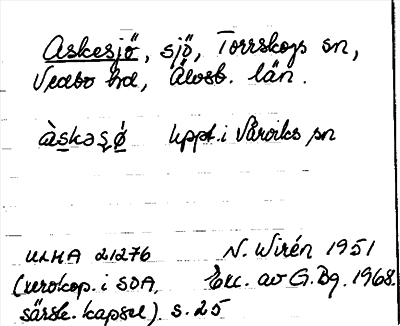 Askesjö, sjö, Torrskogs sn,
Vedbo hd, Älvsb. län.
àskəşó̱ uppt. i Vårviks sn
ULMA 21276 N. Wirén 1951
(xerokop. i SOA, Exc. av G. Bg. 1968.
särsk. kapsel) s. 25